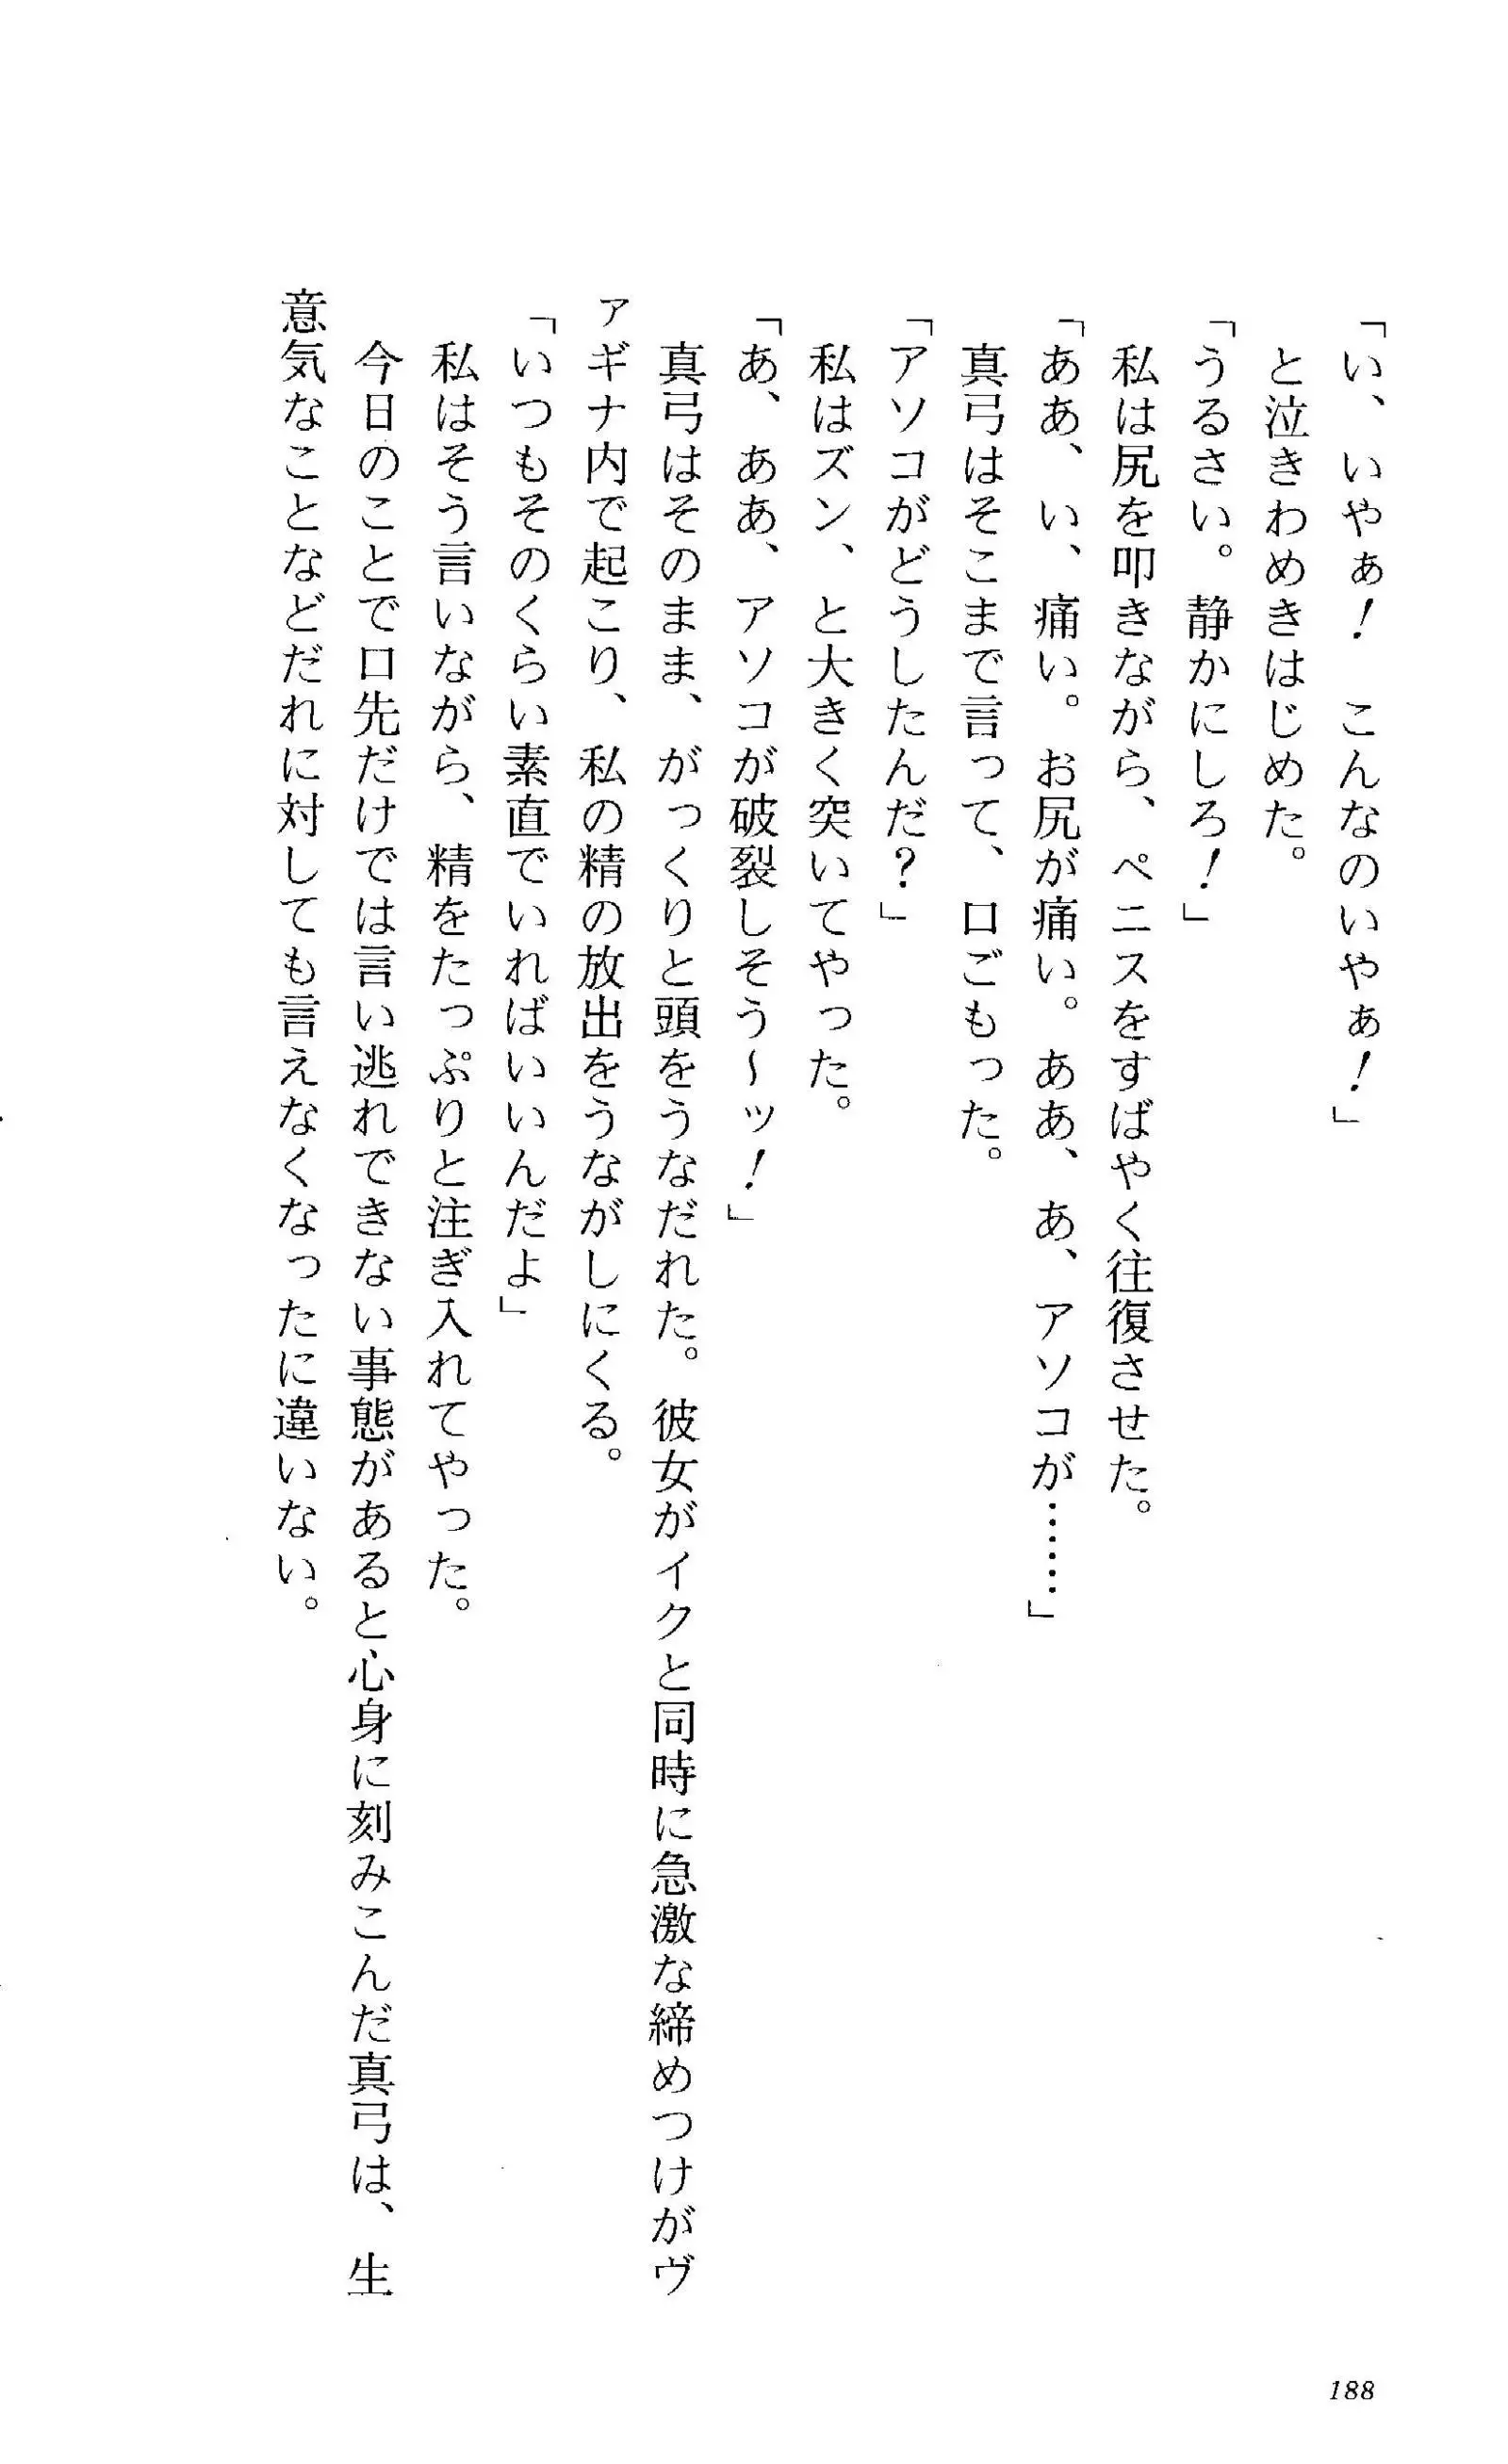 「い、いやぁ！　こんなのいやぁ！」
と泣きわめきはじめた。
「うるさい。静かにしろ！」
私は尻を叩きながら、ペニスをすばやく往復させた。
「ああ、い、痛い。お尻が痛い。ああ、あ、アソコが……」
真弓はそこまで言って、口ごもった。
「アソコがどうしたんだ？」
私はズン、と大きく突いてやった。
「あ、ああ、アソコが破裂しそう～ッ！」
真弓はそのまま、がっくりと頭をうなだれた。彼女がイクと同時に急激な締めつけがヴ
ァギナ内で起こり、私の精の放出をうながしにくる。
「いつもそのくらい素直でいればいいんだよ」
私はそう言いながら、精をたっぷりと注ぎ入れてやった。
今日のことで口先だけでは言い逃れできない事態があると心身に刻みこんだ真弓は、生
意気なことなどだれに対しても言えなくなったに違いない。
188